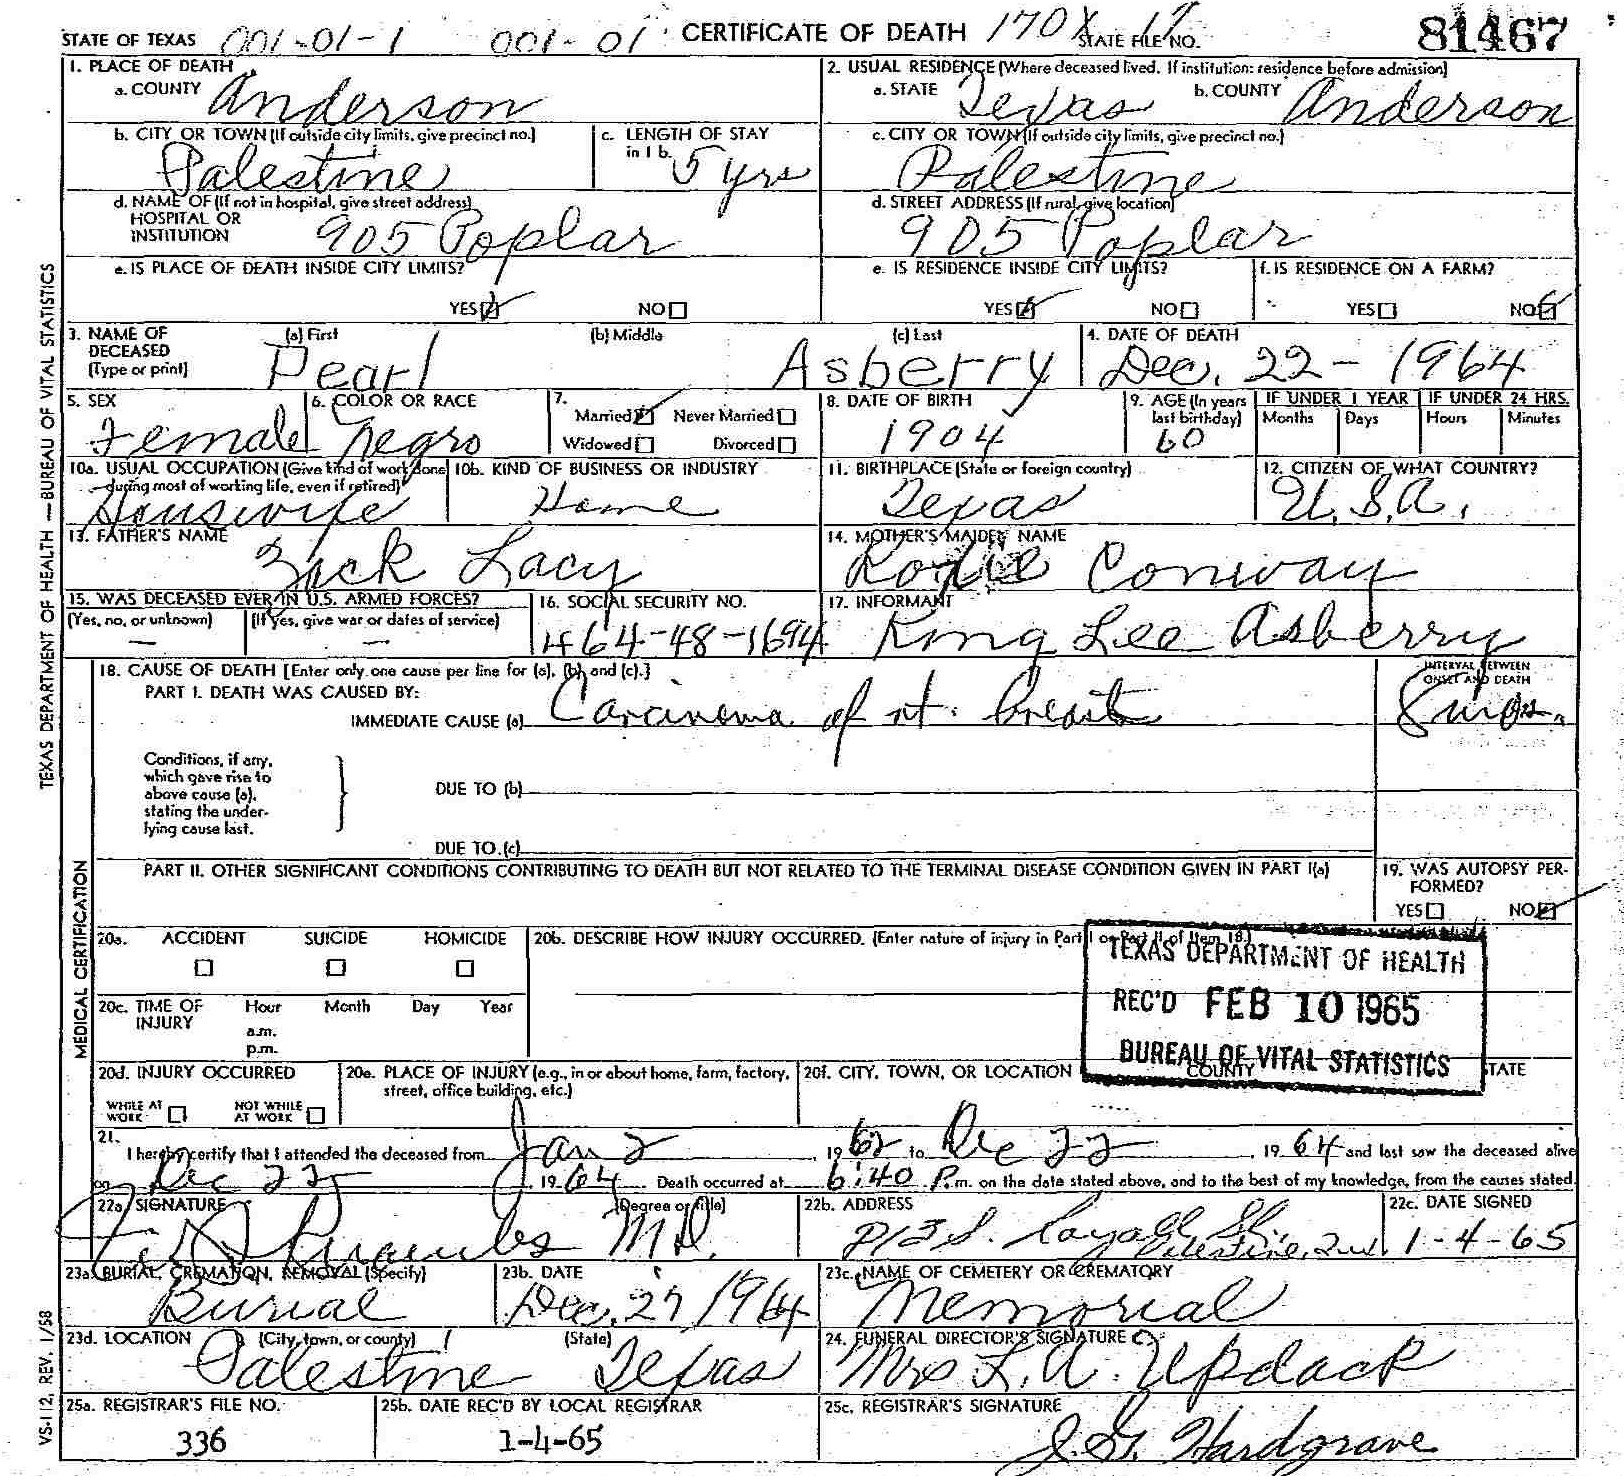 STATE OF TEXAS 001-01-1 001-01 CERTIFICATE OF DEATH 170X 17 STATE FILE NO. 81467
1. PLACE OF DEATH
a. COUNTY Anderson
2. USUAL RESIDENCE (Where deceased lived. If institution: residence before admission)
a. STATE Texas b. COUNTY Anderson
b. CITY OR TOWN (If outside city limits, give precinct no.) Palestine
c. LENGTH OF STAY in 1 b. 5 yrs
c. CITY OR TOWN (If outside city limits, give precinct no.) Palestine
d. NAME OF (If not in hospital, give street address)
HOSPITAL OR
INSTITUTION 905 Poplar
d. STREET ADDRESS (If rural, give location) 905 Poplar
e. IS PLACE OF DEATH INSIDE CITY LIMITS?
YES NO
e. IS RESIDENCE INSIDE CITY LIMITS?
YES NO
f. IS RESIDENCE ON A FARM?
YES NO
3. NAME OF DECEASED (Type or print)
(a) First (b) Middle (c) Last
Pearl Asberry
4. DATE OF DEATH
Dec. 22 - 1964
5. SEX Female
6. COLOR OR RACE Negro
7. Married Never Married
Widowed Divorced
8. DATE OF BIRTH 1904
9. AGE (In years last birthday) 60
IF UNDER 1 YEAR Months Days
IF UNDER 24 HRS. Hours Minutes
10a. USUAL OCCUPATION (Give kind of work done during most of working life, even if retired) Housewife
10b. KIND OF BUSINESS OR INDUSTRY Home
11. BIRTHPLACE (State or foreign country) Texas
12. CITIZEN OF WHAT COUNTRY? U.S.A.
13. FATHER'S NAME Zack Lacy
14. MOTHER'S MAIDEN NAME Conway
15. WAS DECEASED EVER IN U.S. ARMED FORCES?
(Yes, no, or unknown) — (If yes, give war or dates of service) —
16. SOCIAL SECURITY NO. 464-48-1694
17. INFORMANT King Lee Asberry
18. CAUSE OF DEATH [Enter only one cause per line for (a), (b), and (c).]
PART I. DEATH WAS CAUSED BY:
IMMEDIATE CAUSE (a) Carcinema of rt. breast
INTERVAL BETWEEN ONSET AND DEATH
8 mos.
Conditions, if any, which gave rise to above cause (a), stating the underlying cause last.
DUE TO (b)
DUE TO (c)
PART II. OTHER SIGNIFICANT CONDITIONS CONTRIBUTING TO DEATH BUT NOT RELATED TO THE TERMINAL DISEASE CONDITION GIVEN IN PART I(a)
19. WAS AUTOPSY PERFORMED?
YES NO
20a. ACCIDENT SUICIDE HOMICIDE
20b. DESCRIBE HOW INJURY OCCURRED. (Enter nature of injury in Part I or Part II of Item 18.)
TEXAS DEPARTMENT OF HEALTH
REC'D FEB 10 1965
BUREAU OF VITAL STATISTICS
20c. TIME OF INJURY Hour Month Day Year
a.m.
p.m.
20d. INJURY OCCURRED
WHILE AT WORK NOT WHILE AT WORK
20e. PLACE OF INJURY (e.g., in or about home, farm, factory, street, office building, etc.)
20f. CITY, TOWN, OR LOCATION COUNTY STATE
21.
I hereby certify that I attended the deceased from Jan 2 1962 to Dec 22 1964 and last saw the deceased alive
on Dec 22, 1964 Death occurred at 6:40 P.m. on the date stated above, and to the best of my knowledge, from the causes stated.
22a. SIGNATURE (Degree or title) M.D.
22b. ADDRESS 213 S. Palestine,
22c. DATE SIGNED 1-4-65
23a. BURIAL, CREMATION, REMOVAL (Specify) Burial
23b. DATE Dec. 27 1964
23c. NAME OF CEMETERY OR CREMATORY Memorial
23d. LOCATION (City, town, or county) (State)
Palestine Texas
24. FUNERAL DIRECTOR'S SIGNATURE
Mrs L. A. Updack
25a. REGISTRAR'S FILE NO. 336
25b. DATE REC'D BY LOCAL REGISTRAR 1-4-65
25c. REGISTRAR'S SIGNATURE J. G. Hardgrave
TEXAS DEPARTMENT OF HEALTH — BUREAU OF VITAL STATISTICS
MEDICAL CERTIFICATION
VS-112, REV. 1/58